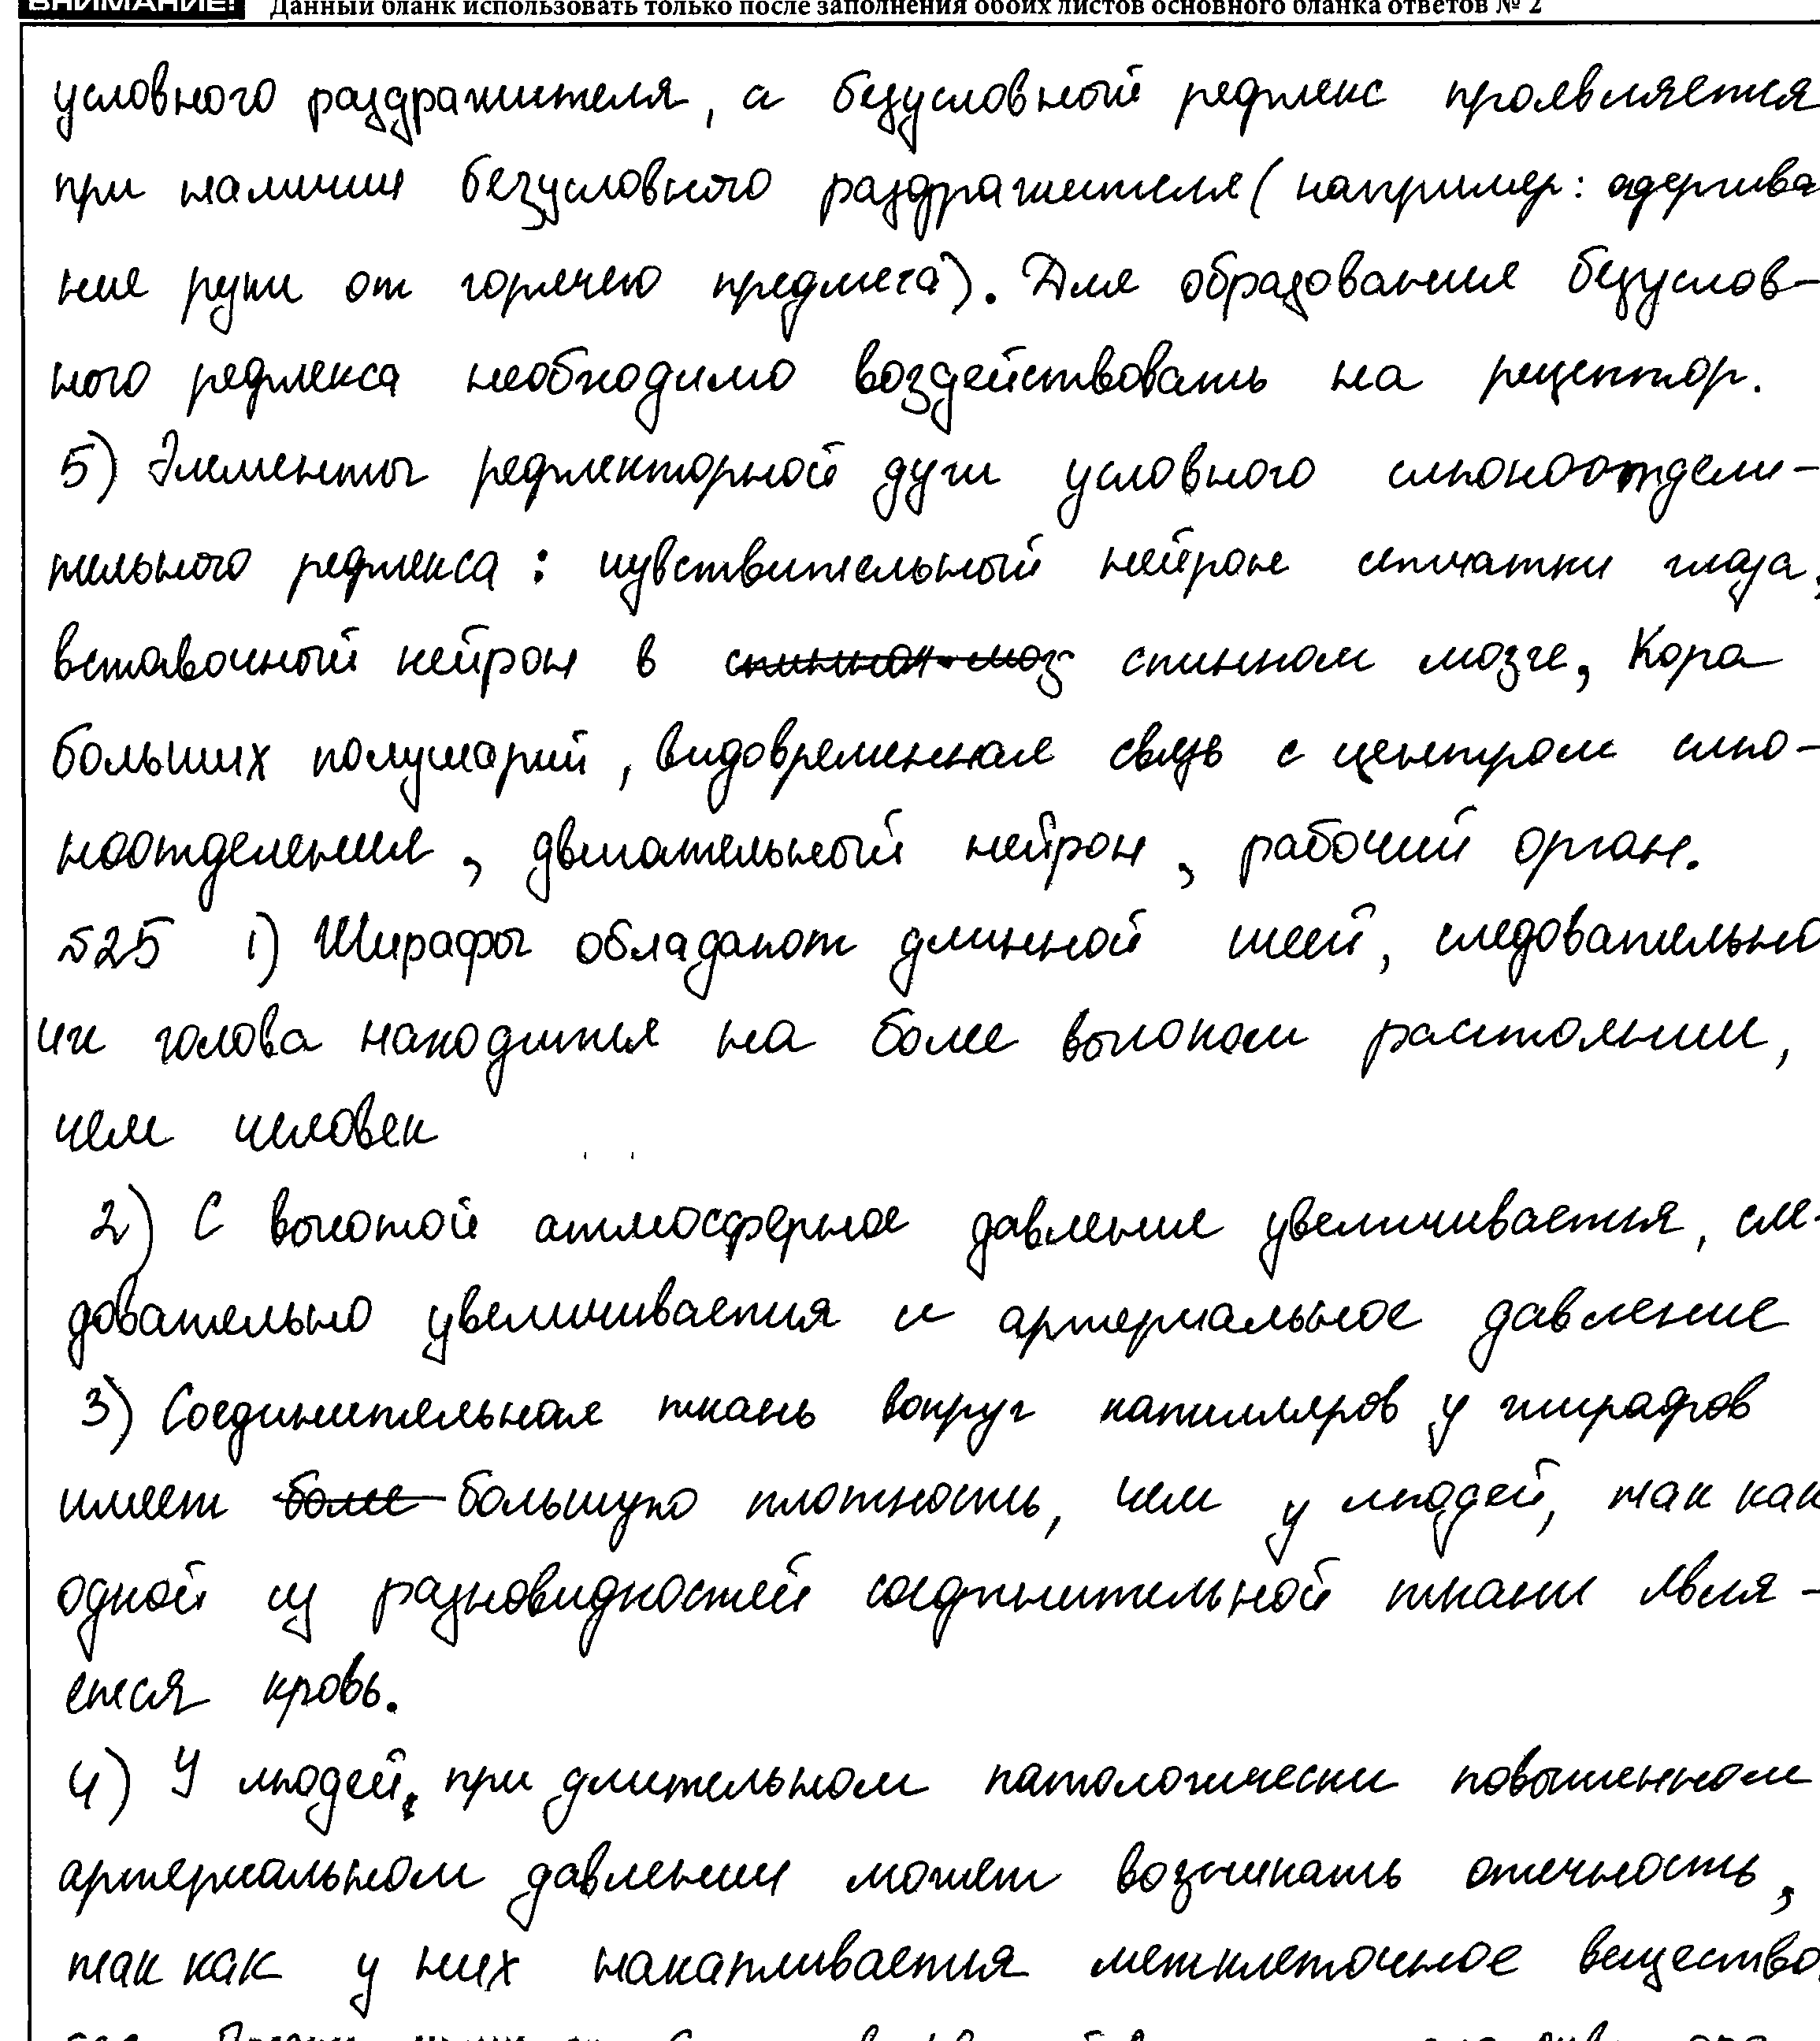 ВНИМАНИЕ! Данный бланк использовать только после заполнения обоих листов основного бланка ответов № 2
условного раздражителя, а безусловный рефлекс проявляется
при наличии безусловного раздражителя (например: одергива
ние руки от горячего предмета). Для образования безуслов-
ного рефлекса необходимо воздействовать на рецептор.
5) Элементы рефлекторной дуги условного слюноотдели-
тельного рефлекса: чувствительный нейрон сетчатки глаза,
вставочный нейрон в спинном моз спинном мозге, Кора
больших полушарий, видовременная связь с центром слю-
ноотделения, двигательный нейрон, рабочий орган.
№25 1) Жирафы обладают длинной шеей, следовательно
их голова находится на более высоком расстоянии,
чем человек
2) С высотой атмосферное давление увеличивается, сле-
довательно увеличивается и артериальное давление
3) Соединительная ткань вокруг капилляров у жирафов
имеет более большую плотность, чем у людей, так как
одной из разновидностей соединительной ткани явля-
ется кровь.
4) У людей, при длительном патологически повышенном
артериальном давлении может возникать отечность,
так как у них накапливается межклеточное вещество,